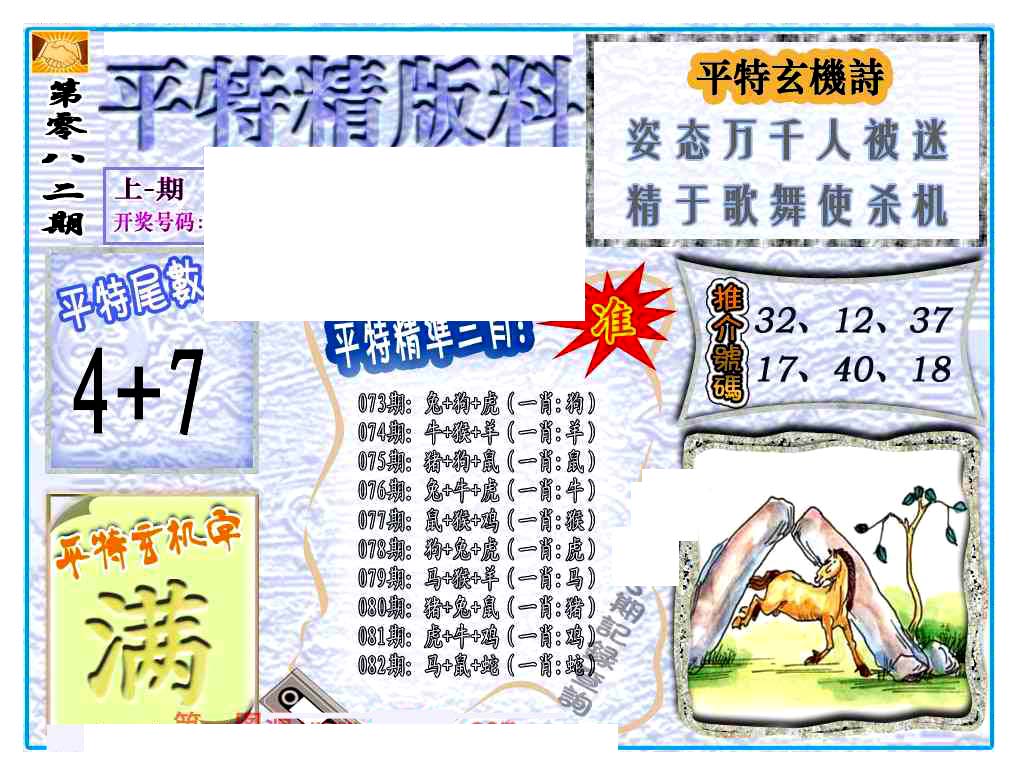 第零八二期
平特精版料
上-期
开奖号码:
平特玄機詩
姿态万千人被迷
精于歌舞使杀机
平特尾數
4+7
平特精準三肖!
准
推介號碼
32、12、37
17、40、18
073期: 兔+狗+虎(一肖:狗)
074期: 牛+猴+羊(一肖:羊)
075期: 猪+狗+鼠(一肖:鼠)
076期: 兔+牛+虎(一肖:牛)
077期: 鼠+猴+鸡(一肖:猴)
078期: 狗+兔+虎(一肖:虎)
079期: 马+猴+羊(一肖:马)
080期: 猪+兔+鼠(一肖:猪)
081期: 虎+牛+鸡(一肖:鸡)
082期: 马+鼠+蛇(一肖:蛇)
平特玄机字
满
期記録查詢